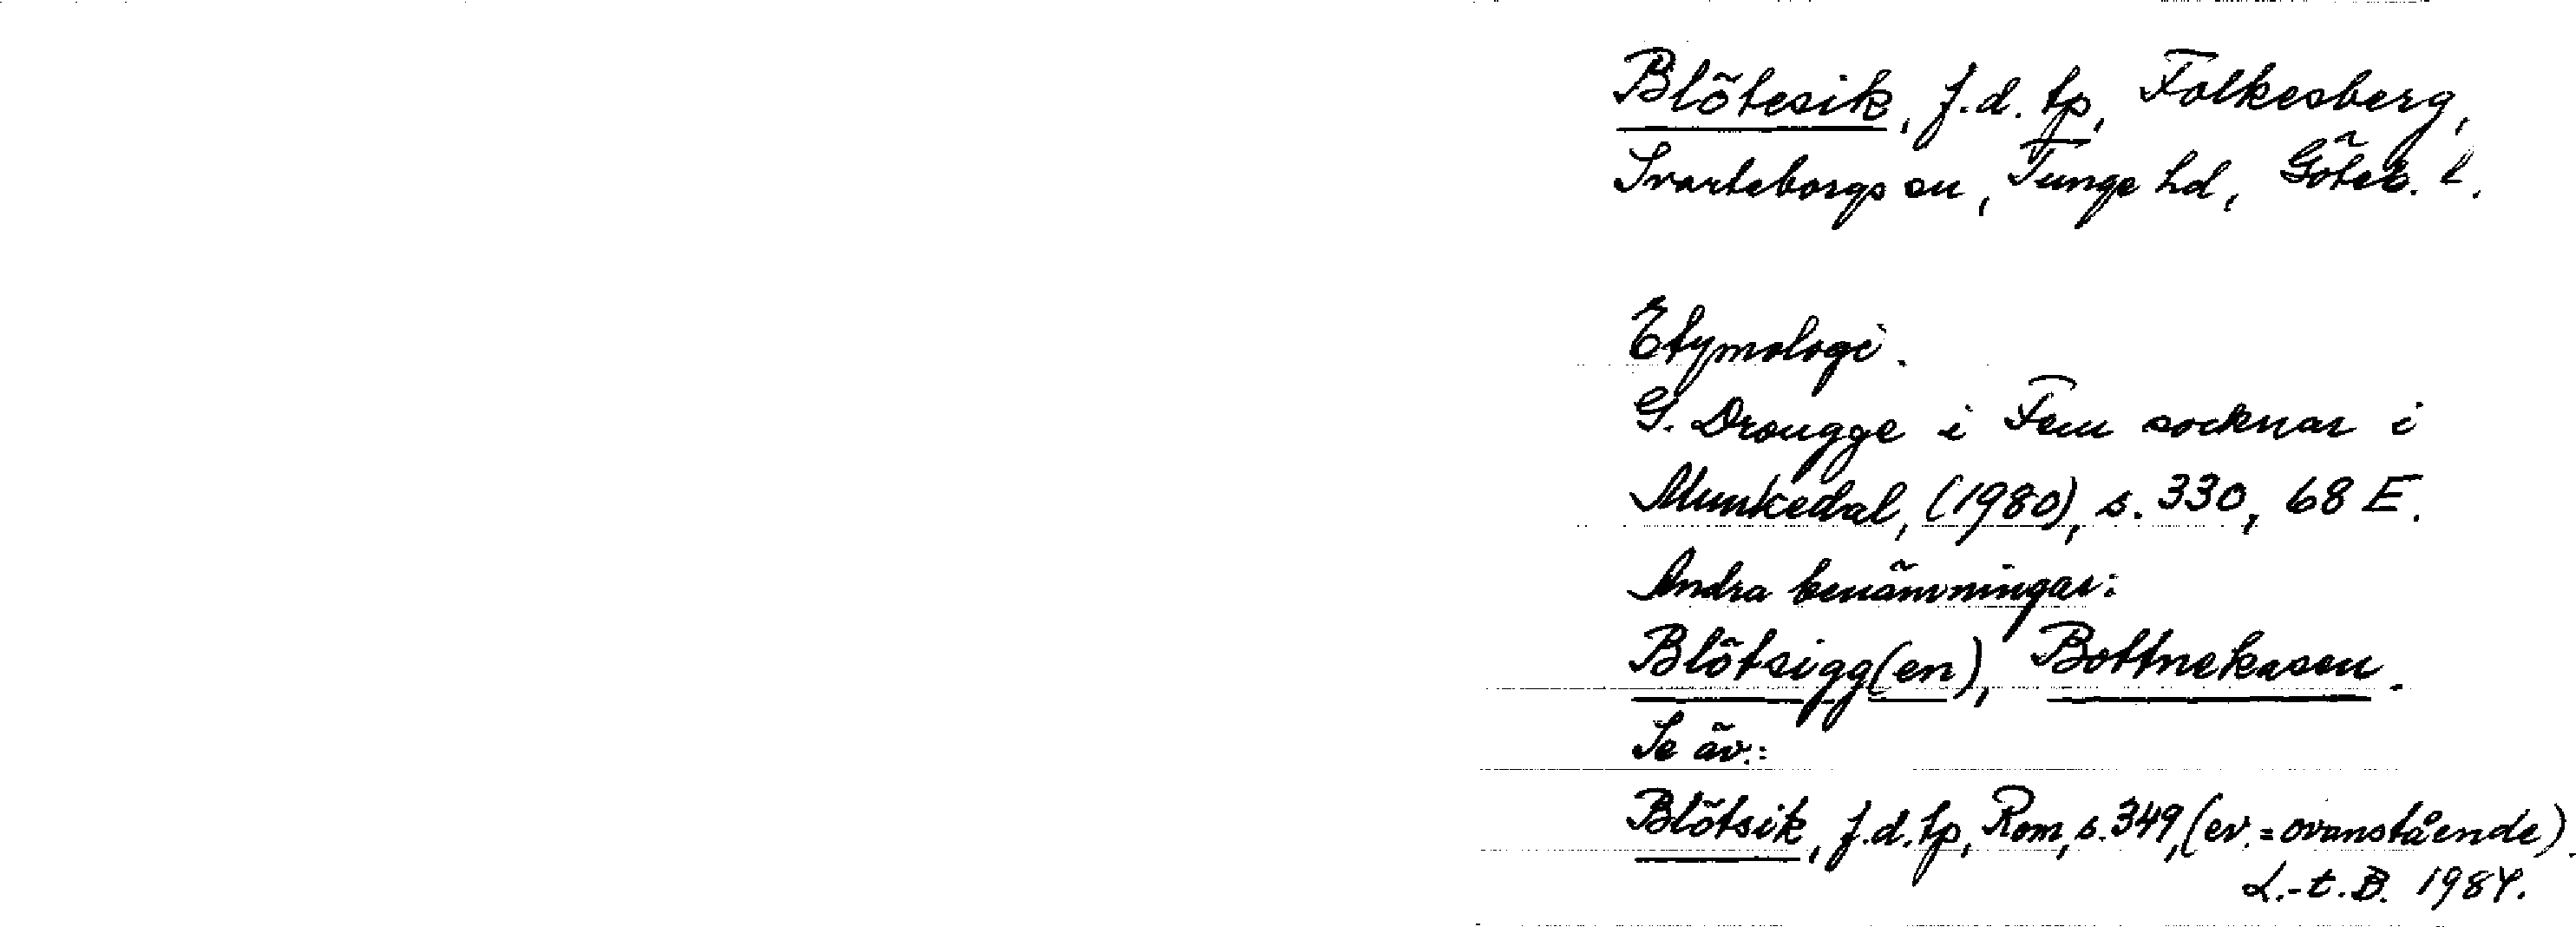 Blötesik, f.d. tp, Folkesberg,
Svarteborgs sn, Tunge hd, Göteb. l.
Etymologi.
G. Drougge i Fem socknar i
Munkedal, (1980), s. 330, 68 E.
Andra benämningar:
Blötsigg(en), Bottnekasen.
Se äv.:
Blötsik, f.d. tp, Rom, s. 349, (ev. = ovanstående).
L.-t. B. 1984.